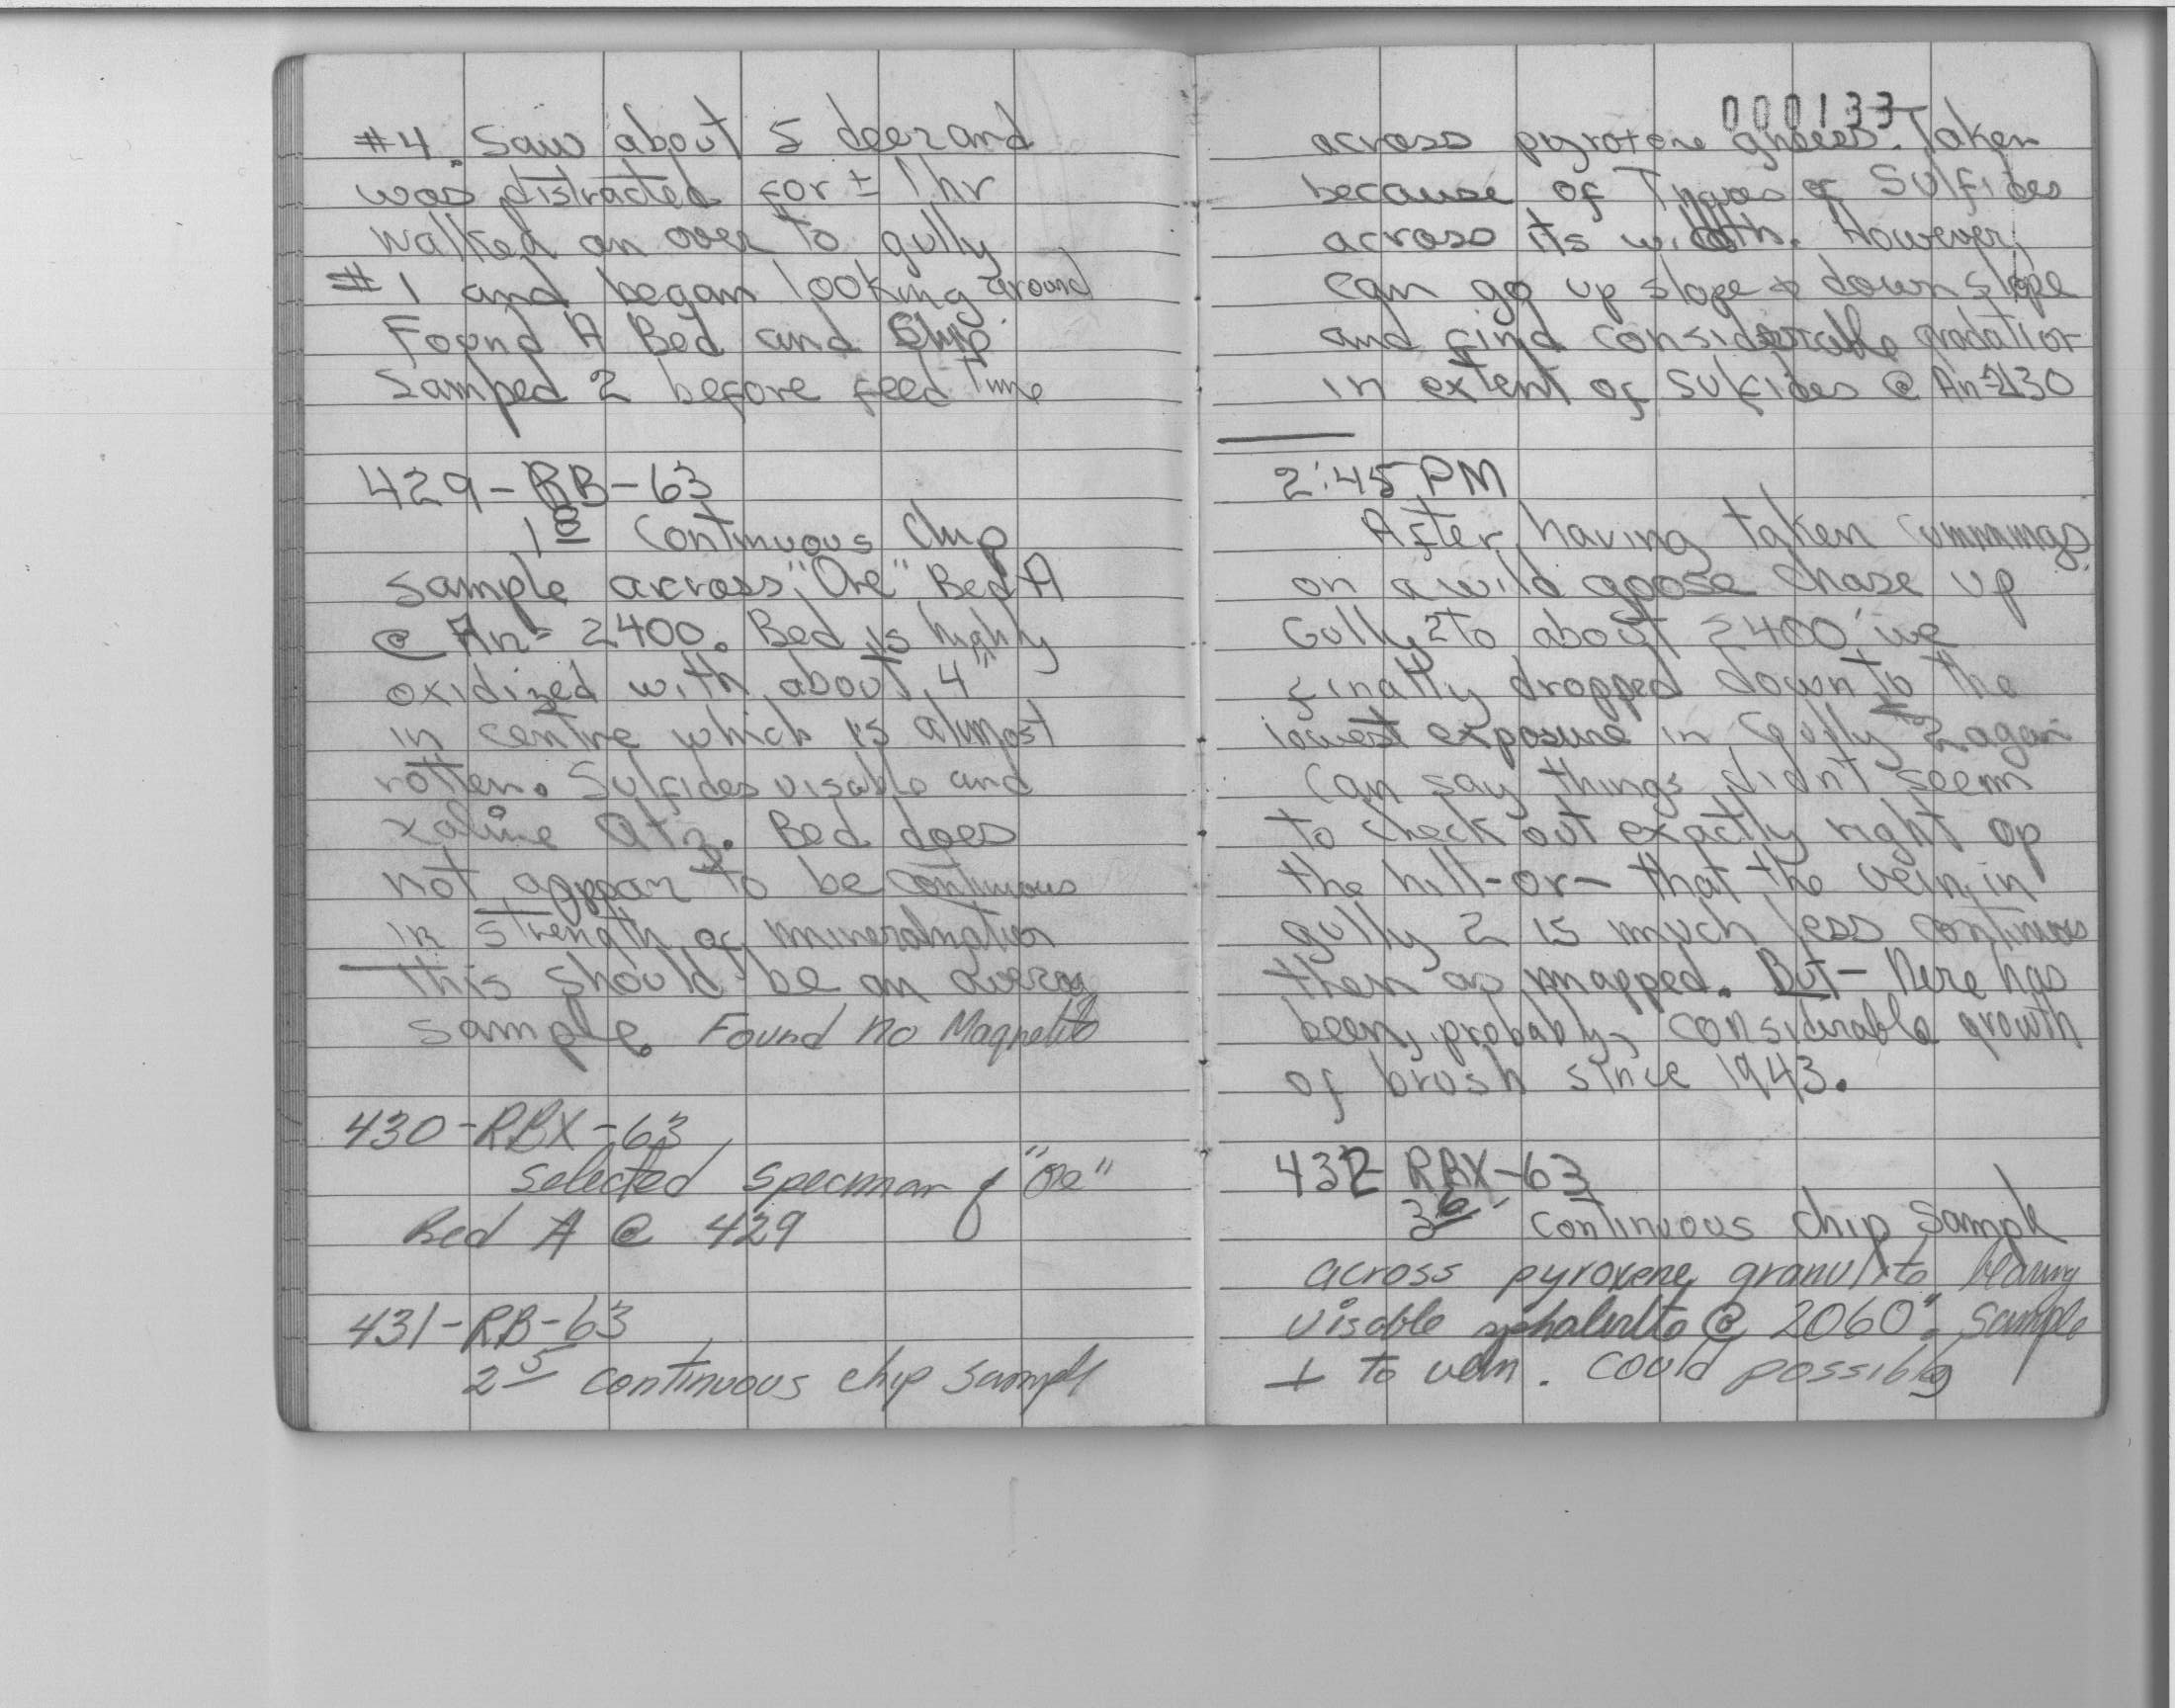 #4. Saw about 5 deer and
was distracted for ± 1 hr
walked on over to gully
#1 and began looking around
Found A Bed and Chip
samped 2 before feed Time
429-RB-63
1 8 Continuous Chip
sample across "Ore" Bed A
@ An = 2400. Bed is highly
oxidized with about 4"
in centre which is almost
rotten. Sulfides visable and
xaline Qtz. Bed does
not appear to be continuous
in strength of mineralization
this should be an average
sample. Found no Magnetite
430-RBX-63
selected specman of "Ore"
Bed A @ 429
431-RB-63
2 5 continuous chip sample
000133
across pyroxene gneiss. Taken
because of Types of Sulfides
across its width. However,
can go up slope & down slope
and find considerable gradation
in extent of Sulfides @ An = 2430
2:45 PM
After having taken Cummings
on a wild goose chase up
Gully 2 to about 2400' we
finally dropped down to the
lowest exposure in Gully 2 again
Can say things didn't seem
to check out exactly right up
the hill-or- that the vein in
gully 2 is much less continuous
then as mapped. But- here has
been, probably, considerable growth
of brush since 1943.
432 RBX-63
3 6' continuous chip sample
across pyroxene granulite bearing
visable sphalerite @ 2060'. Sample
⊥ to vein. Could possibly